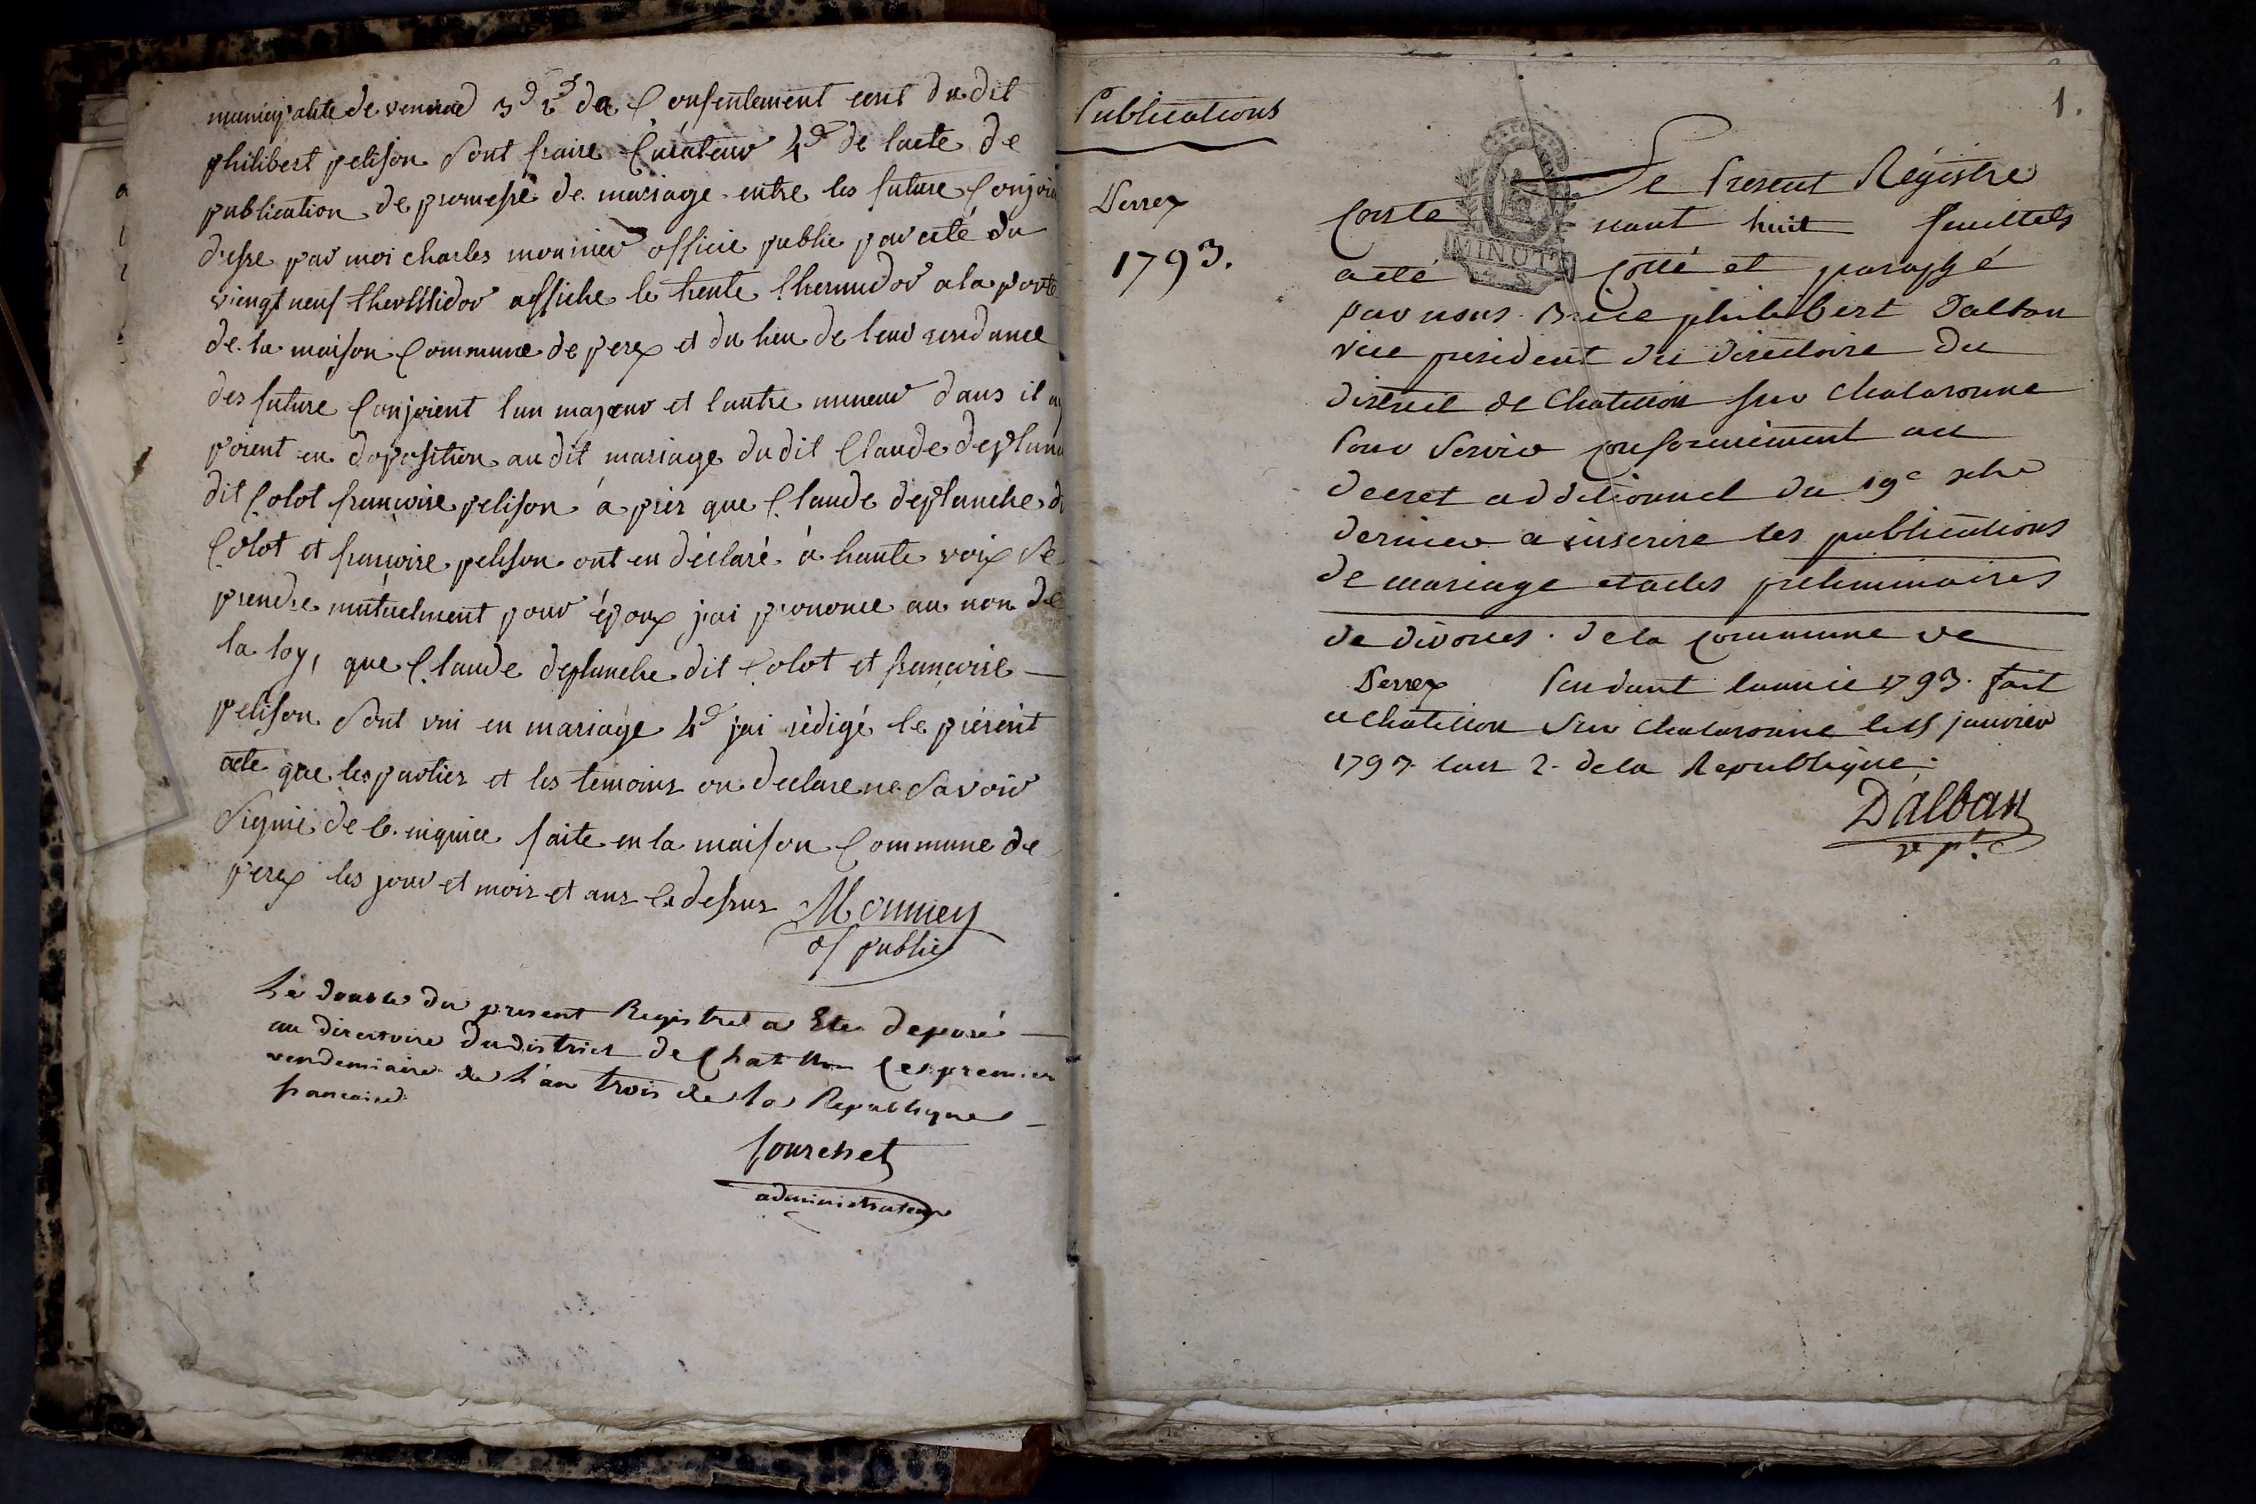 municipalite de 3d du Consentement ecrit dudit
philibert pelison sont fraire Curateur 4d de lacte de
publication de promesse de mariage entre les future Conjoin
dresse par moi charles monnier officie public par acte du
viengt neuf affiche le trente thermidor a la porte
de la maison Commune de perex et du lieu de leur
des future Conjoient lun majeur et lautre mineur dans il
en au dit mariage du dit Claude deplan
dit Colot françoise pelison a près que Claude deplanche d
Colot et françoise pelison ont eu déclaré à haute voix se
prendre mutuelment pour époux jai prononce au non de
la loy, que Claude deplanche dit Colot et françoise
pelison sont uni en mariage 4d jai rédigé le présent
acte que les partiés et les temoins on declare ne savoir
Signié de ce faite en la maison Commune de
perex les jour et mois et ans Ci dessus Monnier
of public
Le double du present Registre a Ete deposé
au directoire du district de Chatillon Ce premier
vendemiaire de l'an trois de la Republique
francaise
fourchet
administrateur
Publications
Perrex
1793.
1.
Le Present Régistre
Conte nant huit feuillets
MINUTE
a été Cotté et paraphé
par nous Brice philibert Dalban
vice president du directoire du
district de Chatillon sur Chalaronne
Pour Servir conformement au
decret additionnel du 19e xbre
dernier a inscrire les publications
de mariage et actes preliminaires
de divorces de la commune de
Perrex Pendant lannée 1793. fait
a Chatillon Sur Chalaronne le 15 janvier
1793 lan 2. de la Republique.
Dalban
v. pt.